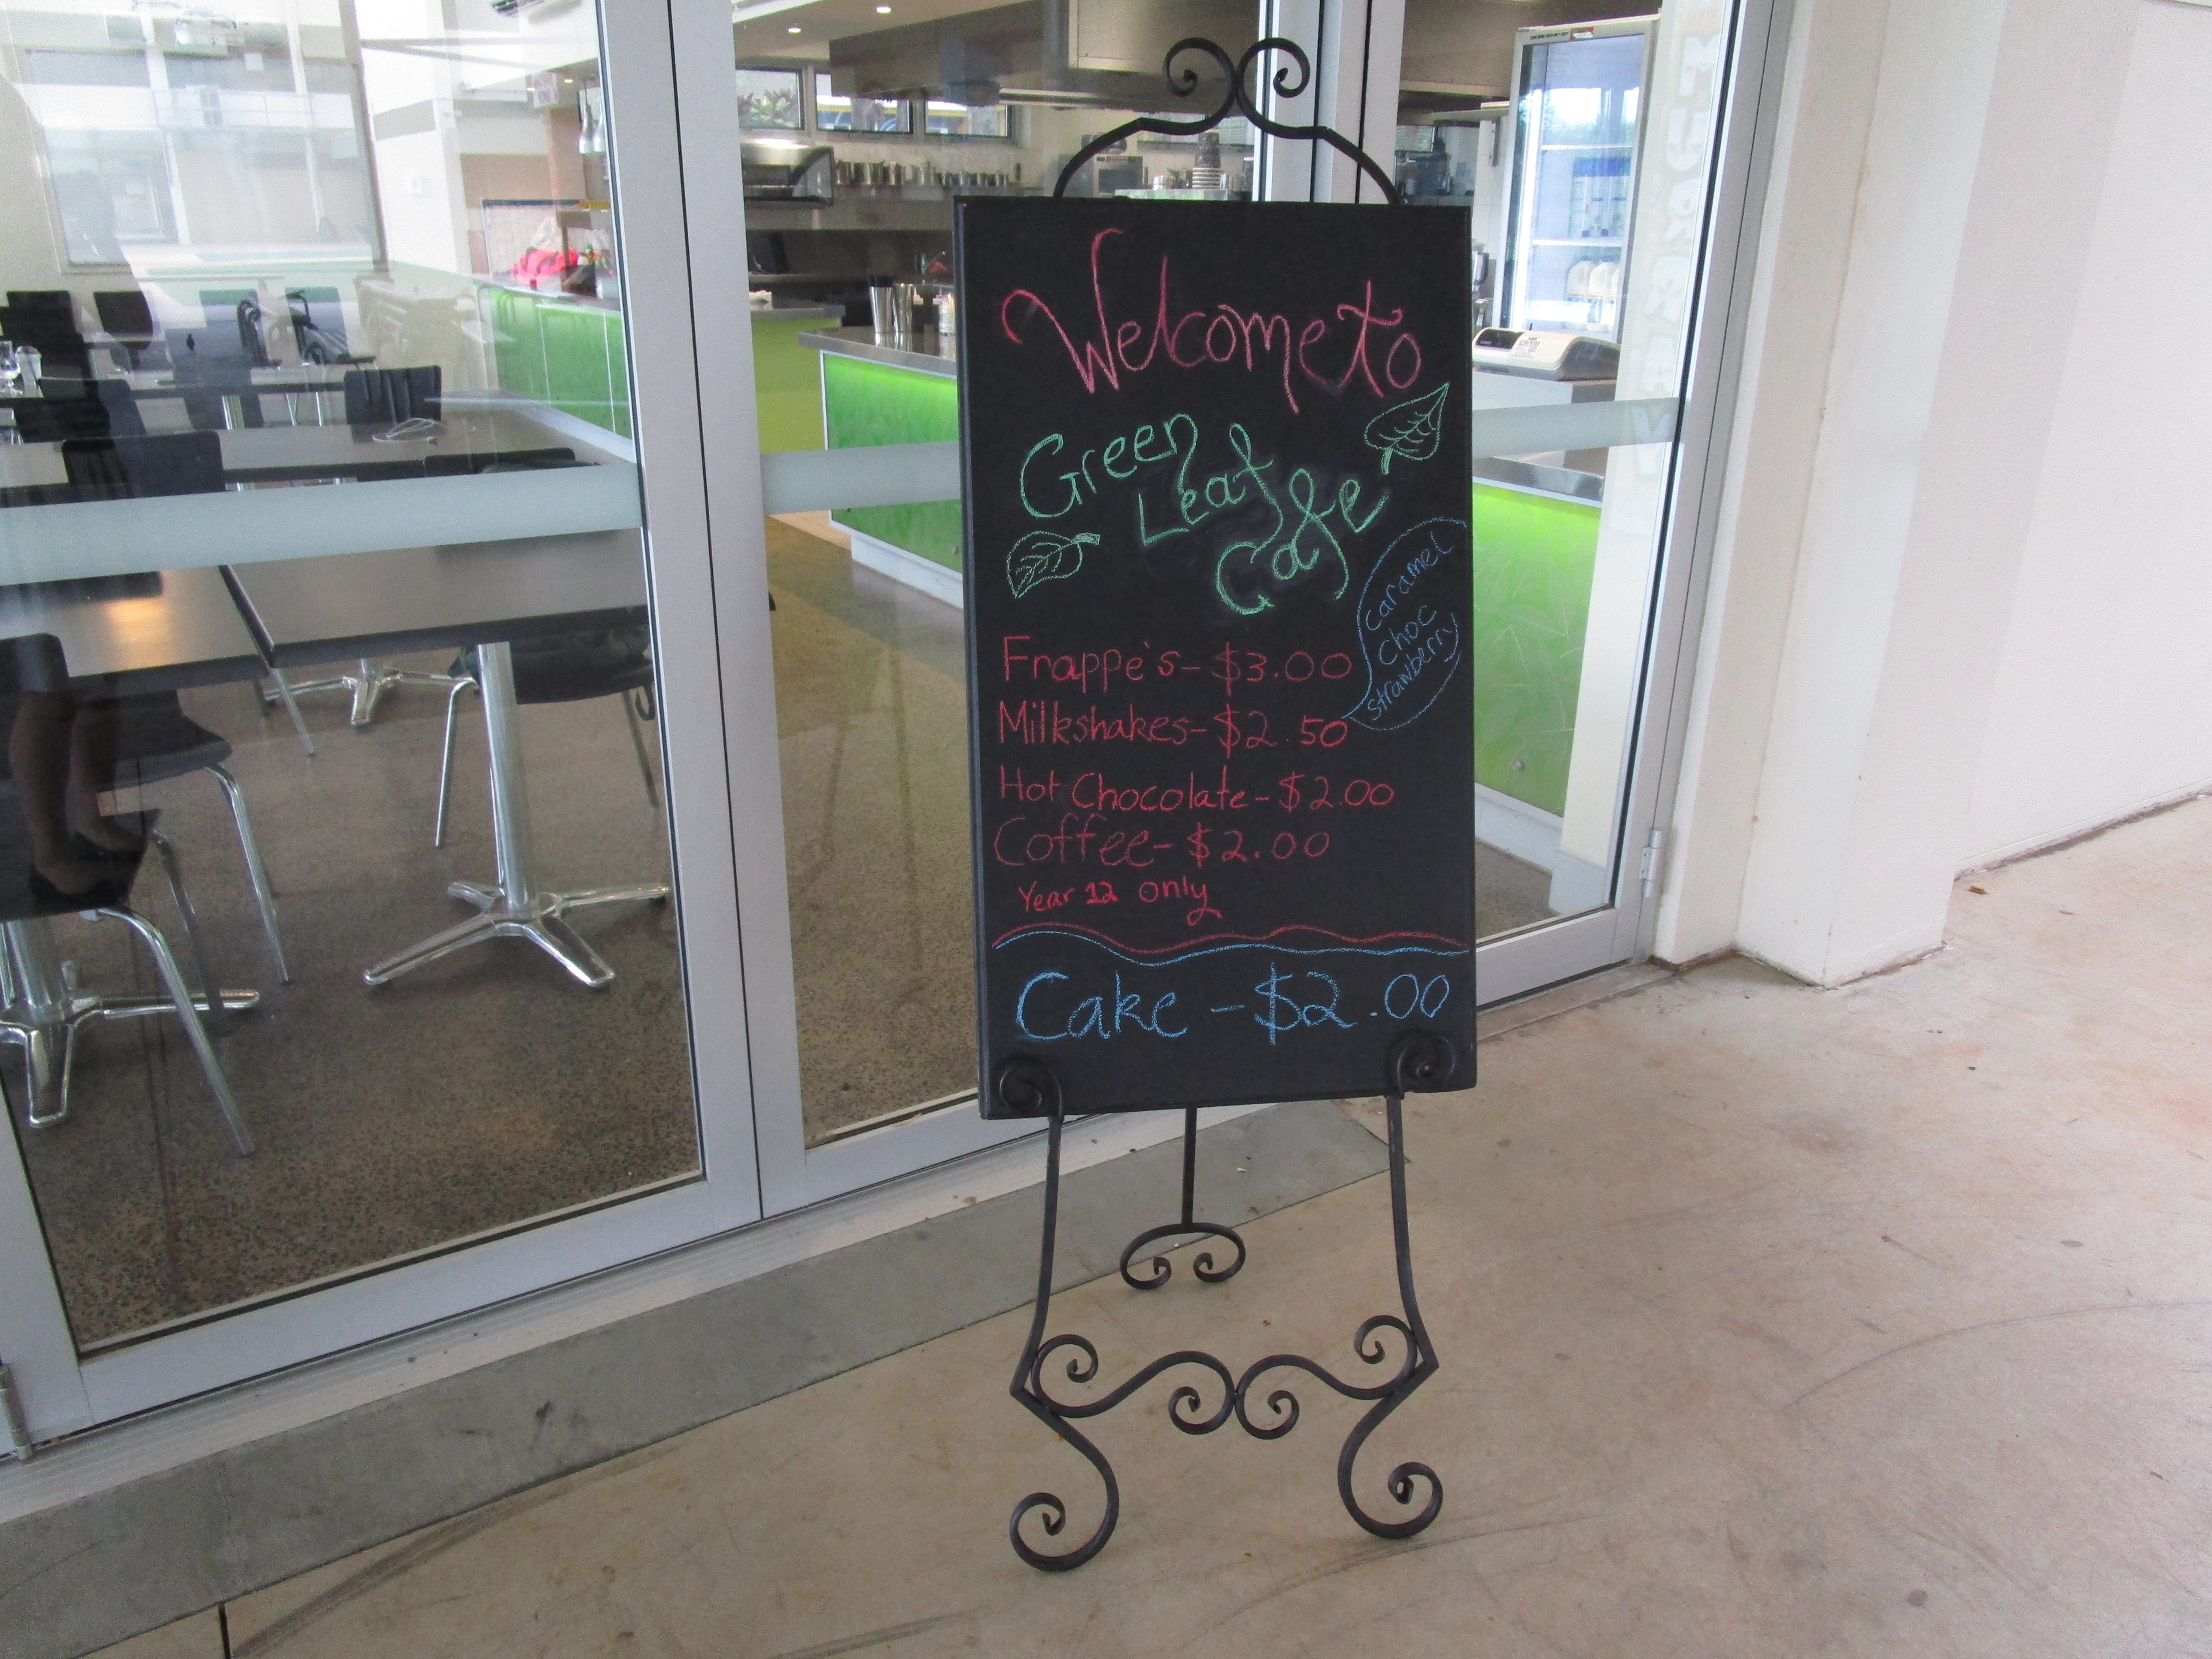 Welcome to
Green
Leaf
Cafe
Caramel
Choc
Strawberry
Frappe's - $3.00
Milkshakes - $2.50
Hot Chocolate - $2.00
Coffee - $2.00
Year 12 only
Cake - $2.00